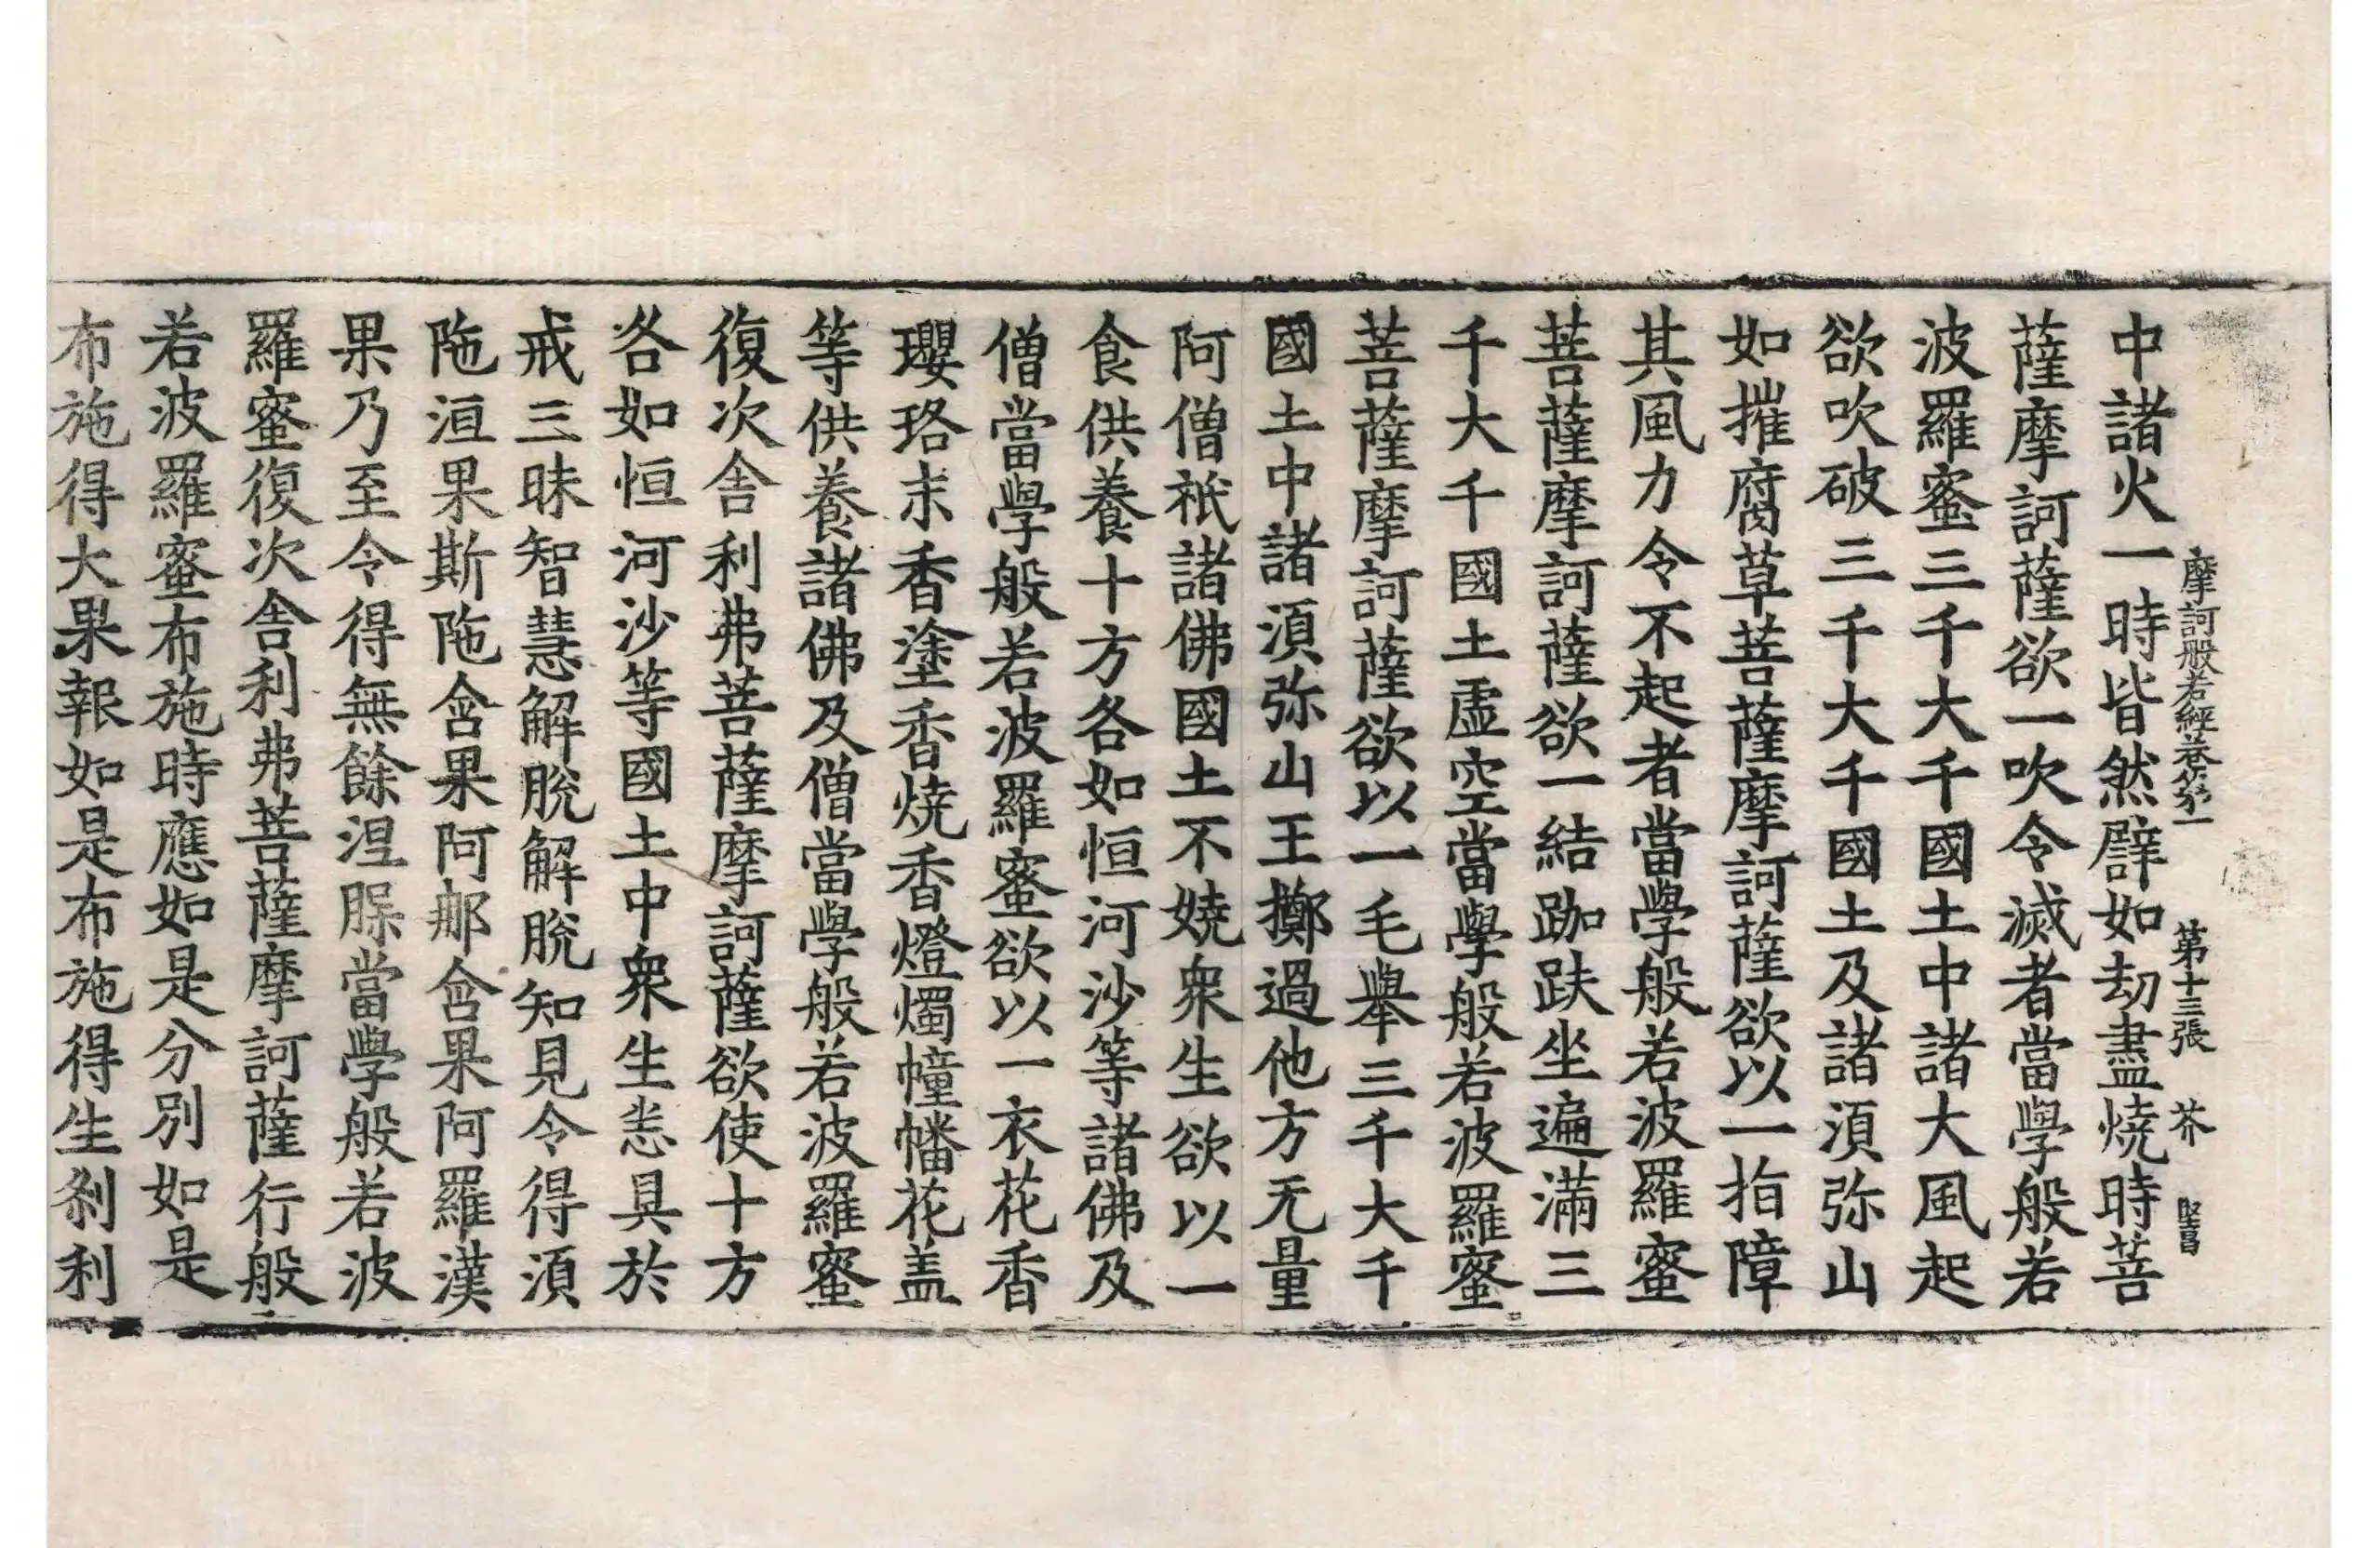 摩訶般若經卷第一　第十三張　芥
中諸火一時皆然譬如劫盡燒時菩
薩摩訶薩欲一吹令滅者當學般若
波羅蜜三千大千國土中諸大風起
欲吹破三千大千國土及諸湏弥山
如摧腐草菩薩摩訶薩欲以一指障
其風力令不起者當學般若波羅蜜
菩薩摩訶薩欲一結跏趺坐遍滿三
千大千國土虛空當學般若波羅蜜
菩薩摩訶薩欲以一毛舉三千大千
國土中諸湏弥山王擲過他方无量
阿僧祇諸佛國土不嬈衆生欲以一
食供養十方各如恒河沙等諸佛及
僧當學般若波羅蜜欲以一衣花香
瓔珞末香塗香燒香燈燭幢幡花盖
等供養諸佛及僧當學般若波羅蜜
復次舍利弗菩薩摩訶薩欲使十方
各如恒河沙等國土中衆生悉具於
戒三昧智慧解脫解脫知見令得湏
陁洹果斯陁含果阿那含果阿羅漢
果乃至令得無餘涅槃當學般若波
羅蜜復次舍利弗菩薩摩訶薩行般
若波羅蜜布施時應如是分別如是
布施得大果報如是布施得生刹利